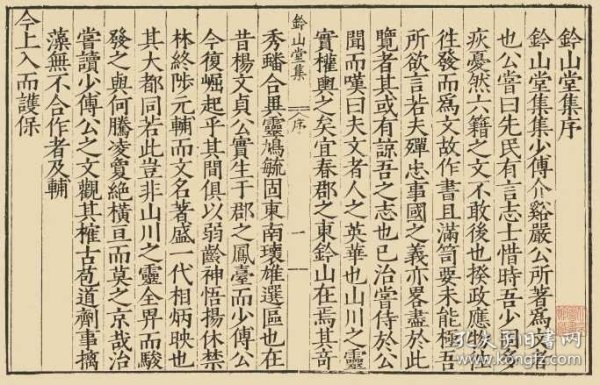 鈐山堂集序
鈐山堂集集少傅介谿嚴公所著為文者
也公嘗曰先民有言志士惜時吾少固多
疾憂然六籍之文不敢後也揆政應物徃
徃發而為文故作書且滿笥要未能極吾
所欲言若夫殫忠事國之義亦畧盡於此
覽者其或有諒吾之志也已治嘗侍於公
聞而嘆曰夫文者人之英華也山川之靈
實權輿之矣宜春郡之東鈐山在焉其奇
鈐山堂集 序 一
秀蟠合毘靈鳩毓固東南瓌雄選區也在
昔楊文貞公實生于郡之鳳臺而少傅公
今復崛起乎其間俱以弱齡神悟揚休禁
林終陟元輔而文名著盛一代相炳映也
其大都同若此豈非山川之靈全畀而駿
發之與何騰凌敻絕橫亘而莫之京哉治
嘗讀少傅公之文觀其榷古苞道劑事摛
藻無不合作者及輔
今上入而護保
孔夫子旧书网
www.kongfz.com